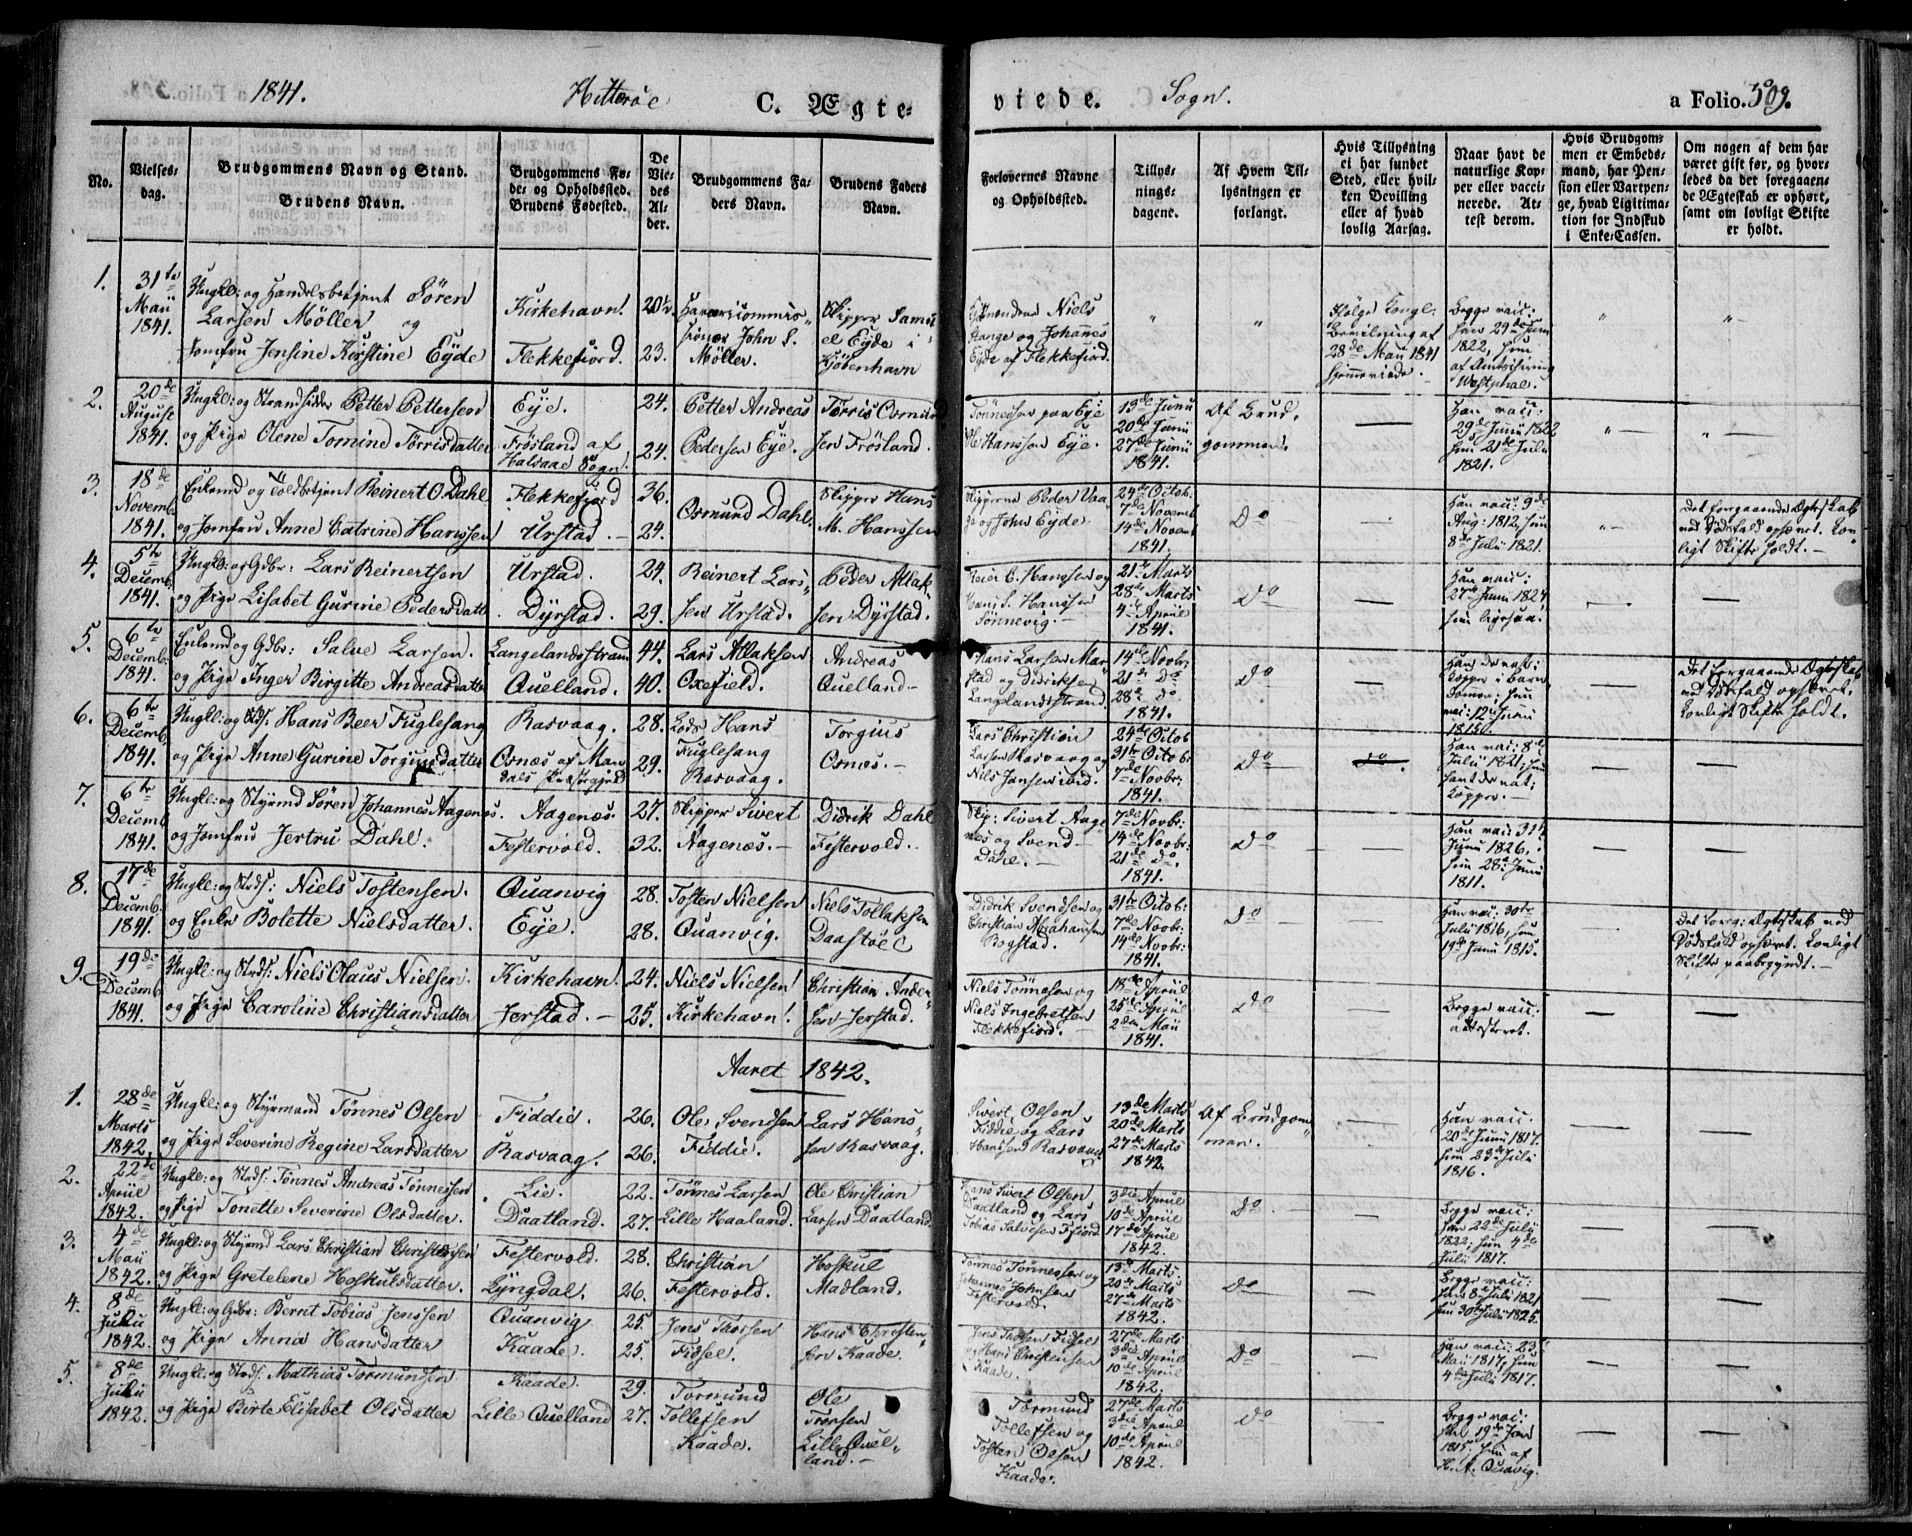 1841. Hitterøe C. Ægte-
viede. Sogn. a Folio. 509.
No.
Vielses-
dag.
Brudgommens Navn og Stand.
Brudens Navn.
Brudgommens Fø-
de- og Opholdssted.
Brudens Fødested.
De
Vie-
des
Al-
der.
Brudgommens Fa-
ders Navn.
Brudens Faders
Navn.
Forlovernes Navne
og Opholdssted.
Tillys-
nings-
dagene.
Af Hvem Til-
lysningen er
forlangt.
Hvis Tillysning
ei har fundet
Sted, eller hvil-
ken Bevilling
eller af hvad
lovlig Aarsag.
Naar havt de
naturlige Kop-
per eller vacci-
nerede. At-
test derom.
Hvis Brudgom-
men er Embeds-
mand, har Pen-
sion eller Vartpen-
ge, hvad Ligitima-
tion for Indskud
i Enke-Cassen.
Om nogen af dem har
været gift før, og hvor-
ledes da det foregaaen-
de Ægteskab er ophørt,
samt om lovligt Skifte
er holdt.
1.
31te
Maii
1841.
Ungkl: og Handelsbetjent Sören
Larsen Möller og
Jomfru Jensine Kirstine Eyde
Kirkehavn.
Flekkefiord.
20½
23.
John L.
Möller.
Skipper Samu
el Eyde i
Kjöbenhavn
Niels
Stange og Johannes
Eyde af Flekkefiord.
Ifölge Kongl:
Bevilning af
28de Maii 1841
hjemmeviede.
Begge vacc:
han 29de Junii
1822, hun
af
Westphal.
2.
20de
August
1841.
Ungkl: og Strandsidder Petter Pettersen
og Pige Olene Tomine Törrisdatter
Eye.
Frösland af
Halsaae Sogn.
24.
24.
Petter Andreas
Pedersen Eye.
Törris Osmund
sen Frösland.
Tönnessen paa Eye
Hanssen Eye.
13de Junii
20de Junii
27de Junii
1841.
Af Brud-
gommen.
Han vacc:
29de Junii 1822
hun 21de Julii
1821.
3.
18de
Novemb.
1841.
Enkemd og Toldbetjent Reinert O. Dahl
og Jomfru Anne Catrine Hanssen
Flekkefiord
Urstad.
36.
24.
Osmund Dahl.
Skipper Hans
M. Hanssen
Skipperne Peder Vaa
ge og John Eyde.
24de Octob:
7de Novemb
14de Novemb
1841.
Do
Han vacc: 9de
Aug: 1812, hun
8de Julii 1821.
Det forgaaende Ægteskab
ved Dödsfald ophævet. Lov-
ligt Skifte holdt.
4.
5te
Decemb.
1841.
Ungkl: og Gdbr: Lars Reinertsen
og Pige Lisabet Gurine Pedersdatter
Urstad.
Dyrstad.
24.
29.
Reinert Lars-
sen Urstad.
Peder Atlak-
sen Dyrstad.
Reier C. Hanssen og
Hans S. Hanssen
Sönnevig.
21de Marts
28de Marts
4de April
1841.
Do
Han vacc:
27de Junii 1827
hun ligesaa.
5.
6te
Decemb:
1841.
Enkemd og Gdbr: Salve Larsen.
og Pige Inger Birgitte Andreasdatter
Langelandsstrand
Quelland.
44.
40.
Lars Atlaksen
Oxefield.
Andreas
Quelland
Hans Larsen Mar
stad og Didriksen
Langlandsstrand.
14de Novbr:
21de Do
28de Do
1841.
Do
Han de nat:
Kopper i Barn
dommen, hun
vac: 12te Junii
1815.
Det forgaaende Ægteskab
ved Dödsfald ophævet.
Lovligt Skifte holdt.
6.
6te
Decemb.
1841.
Ungkl: og Stds: Hans Beer Fuglesang
og Pige Anne Gurine Torgiusdatter
Rasvaag.
Osnæs af Man
dals Præstegjeld
28.
29.
Lods Hans
Fuglesang
Rasvaag.
Torgius
Osnæs.
Lars Christian
Larsen Rasvaag og
Nils Jansen ibid.
24de Octob
31te Octob:
7de Novbr:
1841.
Do
Do.
Han vac: 8de
Julii 1821, hun
havt de nat:
Kopper.
7.
6te
Decemb
1841.
Ungkl: og Styrmd Sören Johannes Aagenæs.
og Jomfru Jertru Dahl.
Aagenæs.
Festervold.
27.
32.
Skipper Sivert
Aagenæs.
Didrik Dahl
Festervold.
Skip: Sivert Aage
næs og Svend
Dahl.
7de Novbr:
14de Novbr:
21de Do.
1841.
Do
Han vacc 31
Junii 1826,
hun 28de Junii
1811.
8.
17de
Decemb.
1841.
Ungkl: og Stds: Niels Tostensen.
og Enke Bolette Nielsdatter.
Quanvig
Eye.
28.
28.
Tosten Nielsen
Quanvig.
Niels Tollaksen
Daastöe
Didrik Svendsen og
Christian Abrahamsen
Rogstad.
31te Octob:
7de Novbr:
14de Novbr:
1841.
Do
Han vac: 30te
Julii 1816, hun
19de Junii 1815.
Det forrg: Ægteskab ved
Dödsfald ophævet. Lovligt
Skifte paabegyndt.
9.
19de
Decemb
1841.
Ungkl: og Stds: Niels Olaus Nielsen.
og Pige Caroline Christiansdatter
Kirkehavn.
Jerstad.
24.
25.
Niels Nielsen
Kirkehavn.
Christian Ander
sen Jerstad.
Niels Tönnesen og
Niels Ingebretsen
Flekkefiord.
18de Apriil
25de Apriil
2den Maii
1841.
Do
Begge vacc:
attesteret.
Aaret 1842.
1.
28de
Marts
1842.
Ungkl: og Styrmand Tönnes Olsen
og Pige Severine Regine Larsdatter
Fiddie.
Rasvaag.
26.
26.
Ole Svendsen
Fiddie.
Lars Hans-
sen Rasvaag.
Sivert Olsen
Fiddie og Lars
Hanssen Rasvaag
13de Marts
20de Marts
27de Marts
1842.
Af Brudgom-
men.
Han vacc.
20de Junii 1817.
hun 23de Julii
1816.
2.
22de
Apriil
1842.
Ungkl: og Stds: Tönnes Andreas Tönnessen
og Pige Tonette Severine Olsdatter.
Lie.
Daatland.
22.
27.
Tönnes Larsen
Lille Haaland.
Ole Christian
Larsen Daatland.
Hans Sivert Olsen
Daatland og Lars
Tobias Salvesen Fjord
3die Apriil
10de Apriil
17de Apriil
1842.
Do
Begge vacc:
han 22de Julii
1822, hun 4de
Julii 1817.
3.
4de
Maii
1842.
Ungkl: og Styrmd Lars Christian Christensen
og Pige Gretelene Hoskulsdatter.
Festervold.
Lyngdal.
28.
26.
Christian
Festervold.
Hoskul
Madland.
Tönnes Tönnessen og
Johannes Johnsen
Festervold.
13de Marts
20de Marts
27de Marts
1842.
Do
Begge vacc:
han 8de Julii 1821
hun 30te Julii 1825.
4.
8de
Julii
1842.
Ungkl: og Gdbr: Berrit Tobias Jenssen
og Pige Anna Hansdatter
Quanvig
Kaade.
25.
25.
Jens Thorsen
Fidsel.
Hans Christen-
sen Kaade.
Jens Thorsen Fidsel
og Hans Christensen
Kaade.
27de Marts
3die Apriil
10de Apriil
1842.
Do
Han vacc: 23
Maii 1817, hun
4de Julii 1817.
5.
8de
Julii
1842.
Ungkl: og Stds: Mathias Tormundsen
og Pige Birte Elisabet Olsdatter
Kaade.
Lille Quelland
29.
27.
Tormund
Tollefsen
Kaade.
Ole
Törresen
Lille Quel-
land.
Tormund
Tollefsen og
Tosten Olsen
Kaade.
27de Marts
3die Apriil
10de Apriil
1842.
Do
Begge vac:
han 19de Jan
1815, hun af
H. A. Quavig.